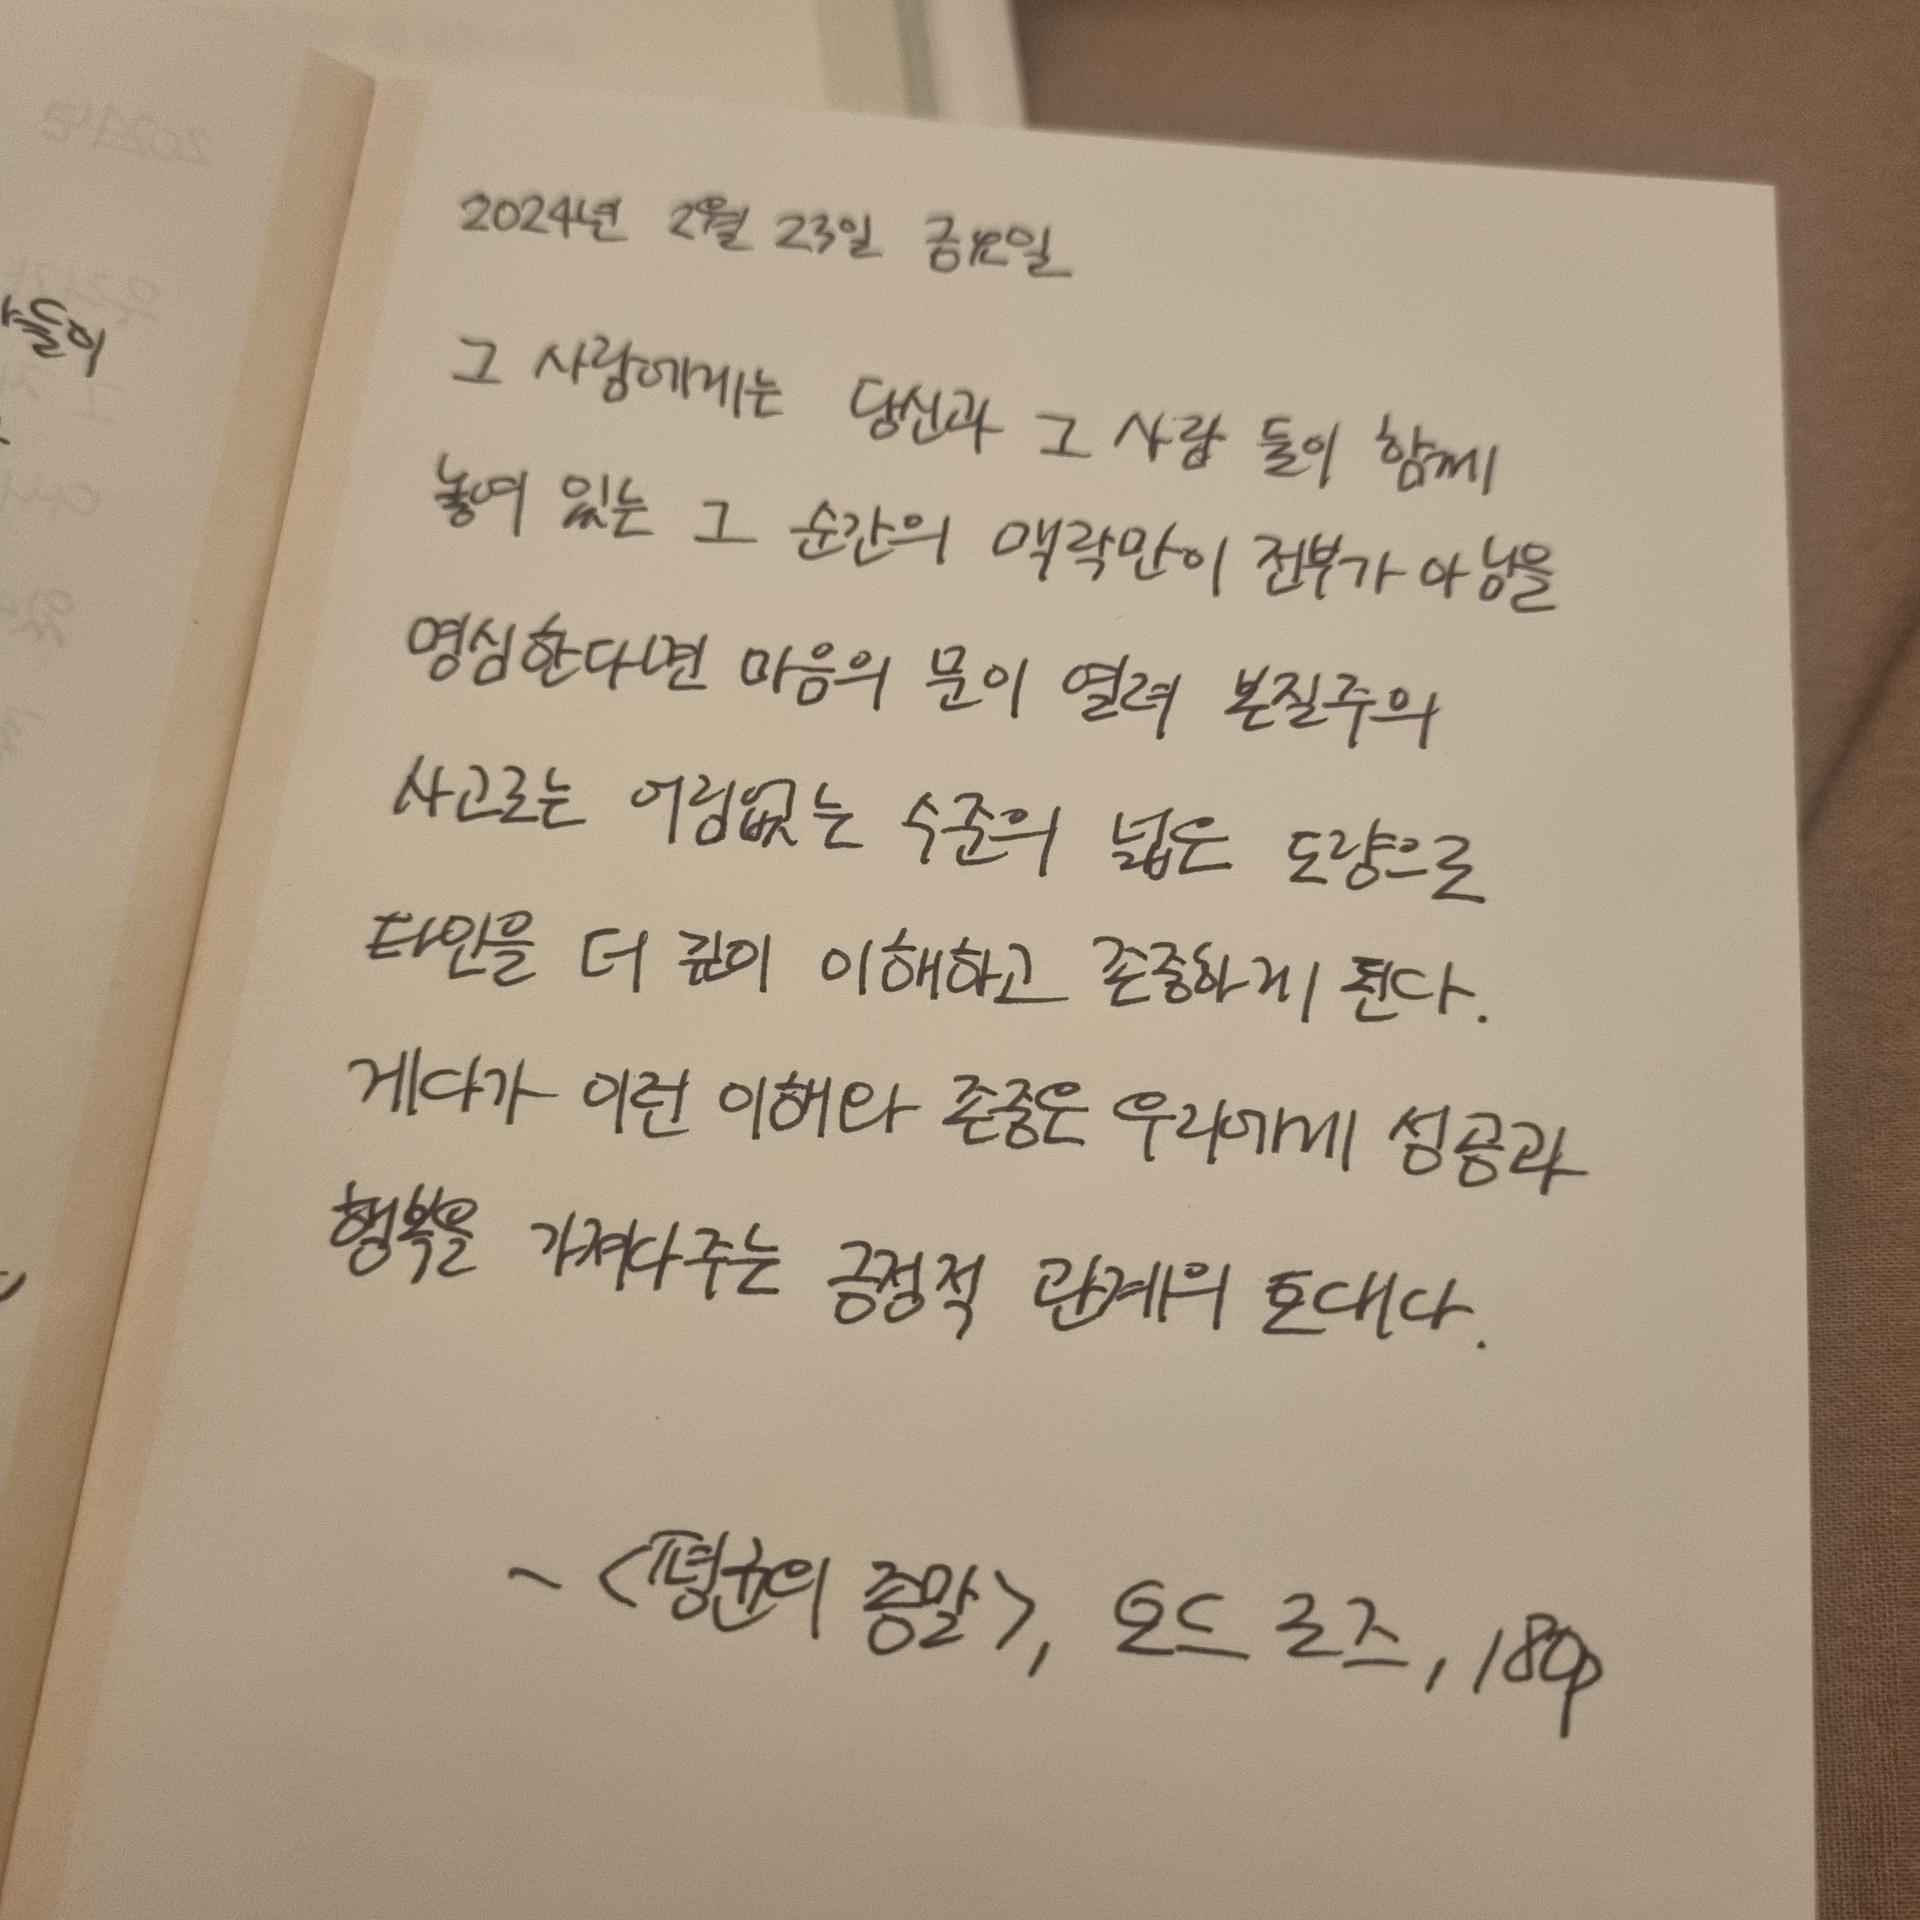 2024년 2월 23일 금요일
그 사람에게는 당신과 그 사람 둘이 함께
놓여 있는 그 순간의 맥락만이 전부가 아님을
명심한다면 마음의 문이 열려 본질주의
사고로는 어림없는 수준의 넓은 도량으로
타인을 더 깊이 이해하고 존중하게 된다.
게다가 이런 이해와 존중은 우리에게 성공과
행복을 가져다주는 긍정적 관계의 토대다.
~ <평균의 종말>, 토드 로즈, 180p